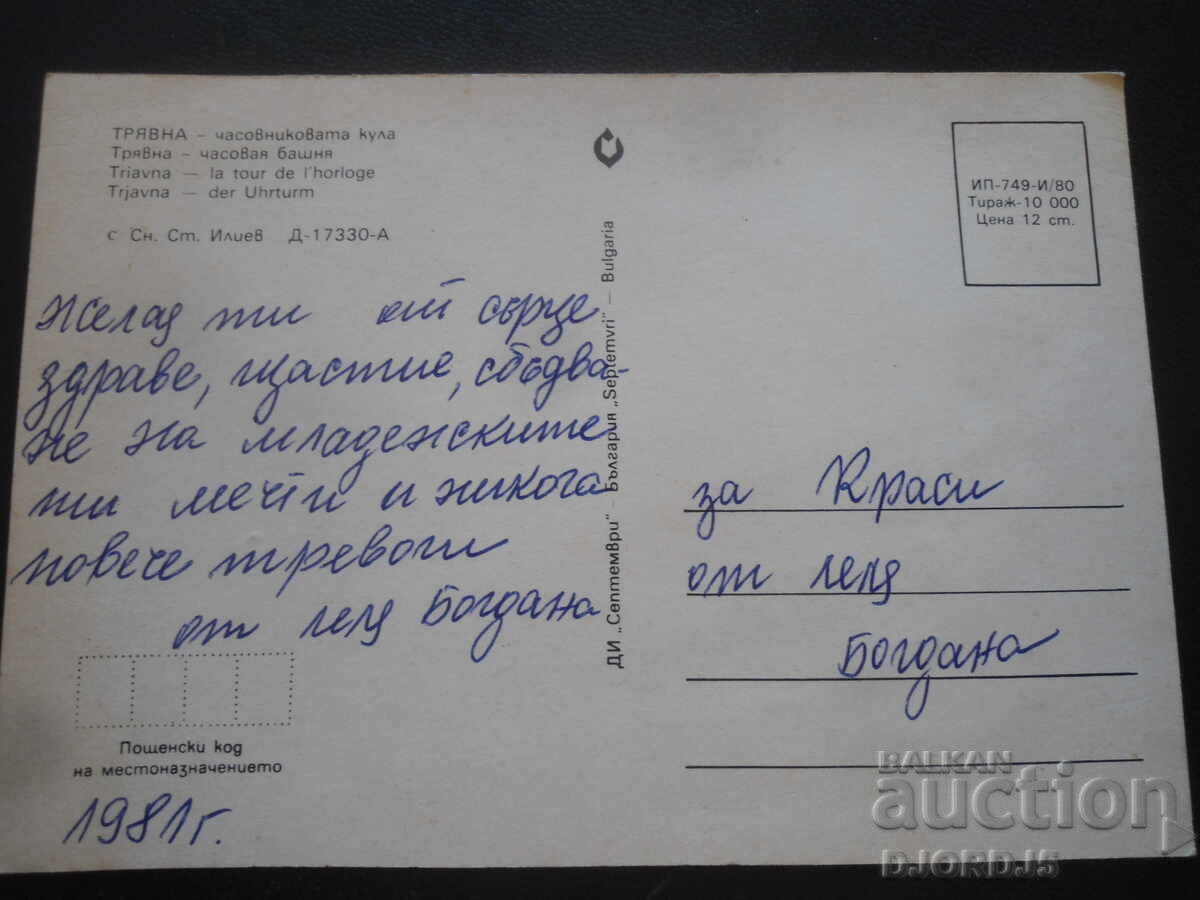 ТРЯВНА – часовниковата кула
Трявна – часовая башня
Triavna — la tour de l'horloge
Trjavna — der Uhrturm
с Сн. Ст. Илиев Д-17330-А
Желая ти от сърце
здраве, щастие, сбъдва-
не на младежките
ти мечти и никога
повече тревоги
от леля Богдана
Пощенски код
на местоназначението
1981г.
ДИ „Септември" — България „Septemvri" — Bulgaria
ИП-749-И/80
Тираж-10 000
Цена 12 ст.
за Краси
от леля
Богдана
BALKAN
auction
DJORDJ5